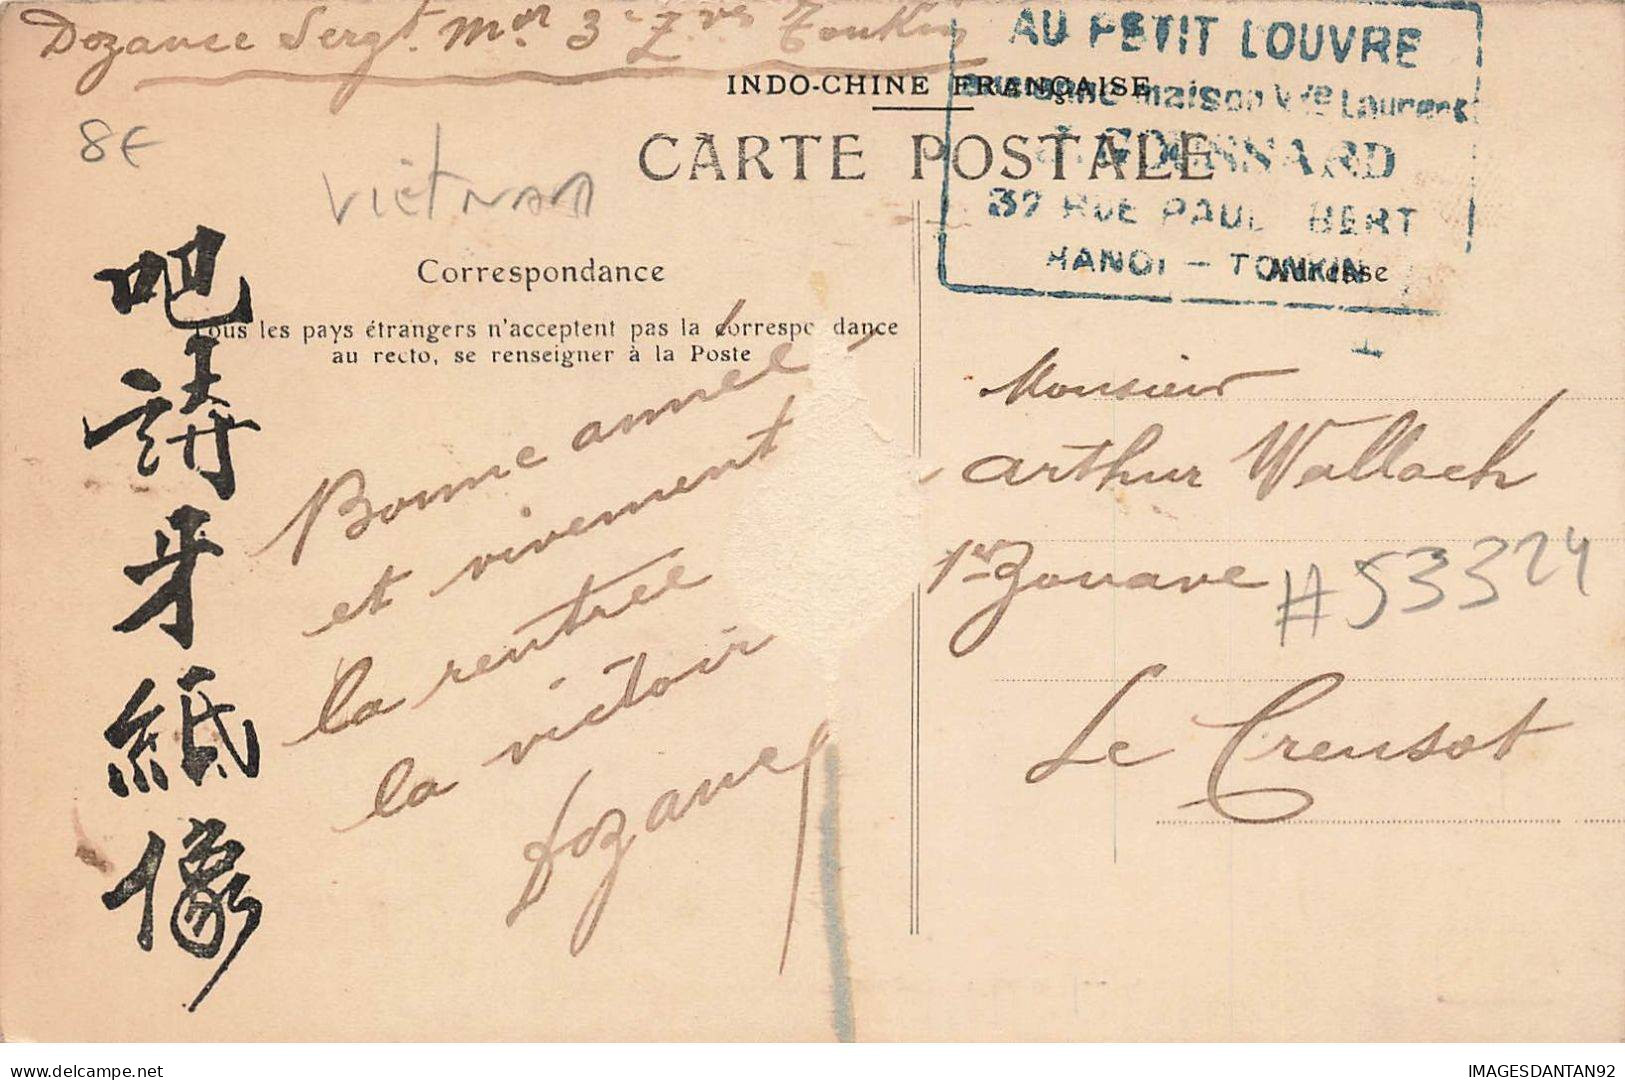 Dozance Sergt. Mor 3e Zves Tonkin
AU PETIT LOUVRE
maison Vve Laurent
37 RUE PAUL BERT
HANOI - TONKIN
INDO-CHINE FRANÇAISE
CARTE POSTALE
8€
Vietnam
Correspondance
Adresse
Tous les pays étrangers n'acceptent pas la correspondance
au recto, se renseigner à la Poste
吧
請
牙
紙
像
Bonne année
et vivement
la rentrée
la victoir
Dozance
Monsieur
Arthur Wallach
1er Zouave
#53324
Le Creusot
IMAGESDANTAN92